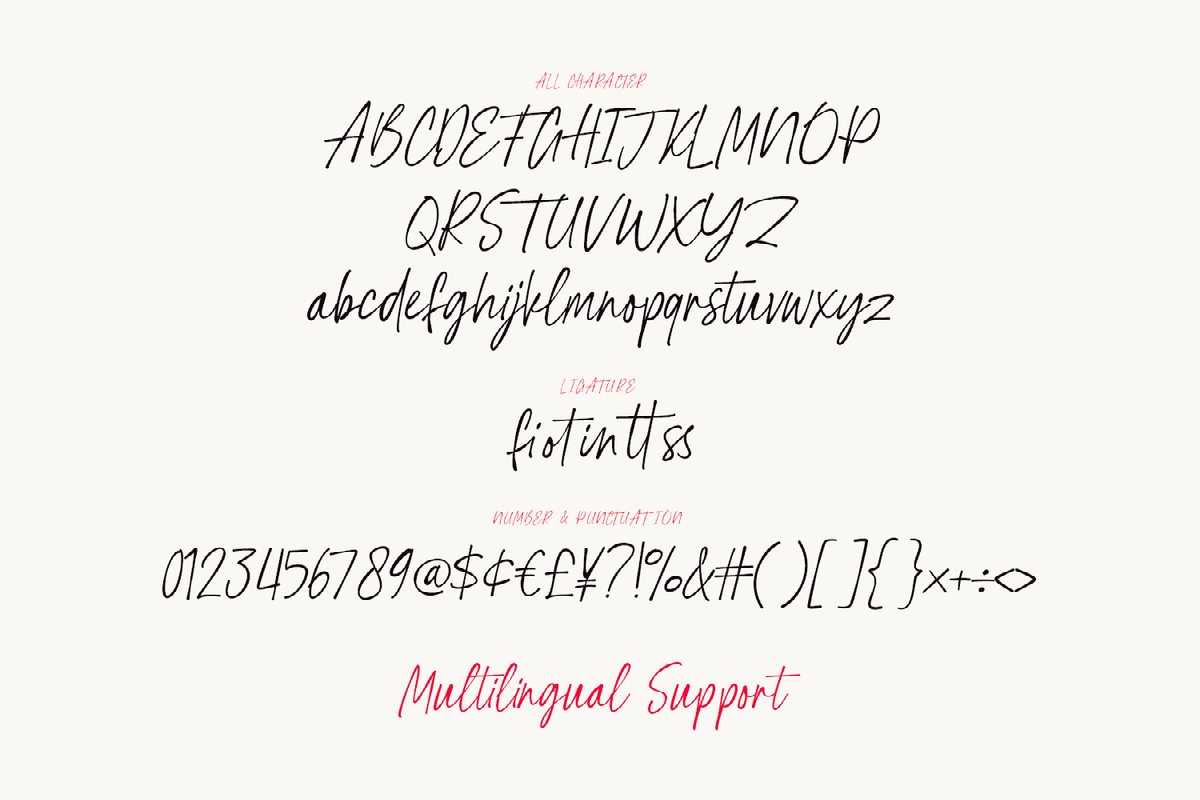 ALL CHARACTER
ABCDEFGHIJKLMNOP
QRSTUVWXYZ
abcdefghijklmnopqrstuvwxyz
LIGATURE
fiotinttss
NUMBER & PUNCTUATION
0123456789@$¢€£¥?!%&#()[]{}×+÷<>
Multilingual Support